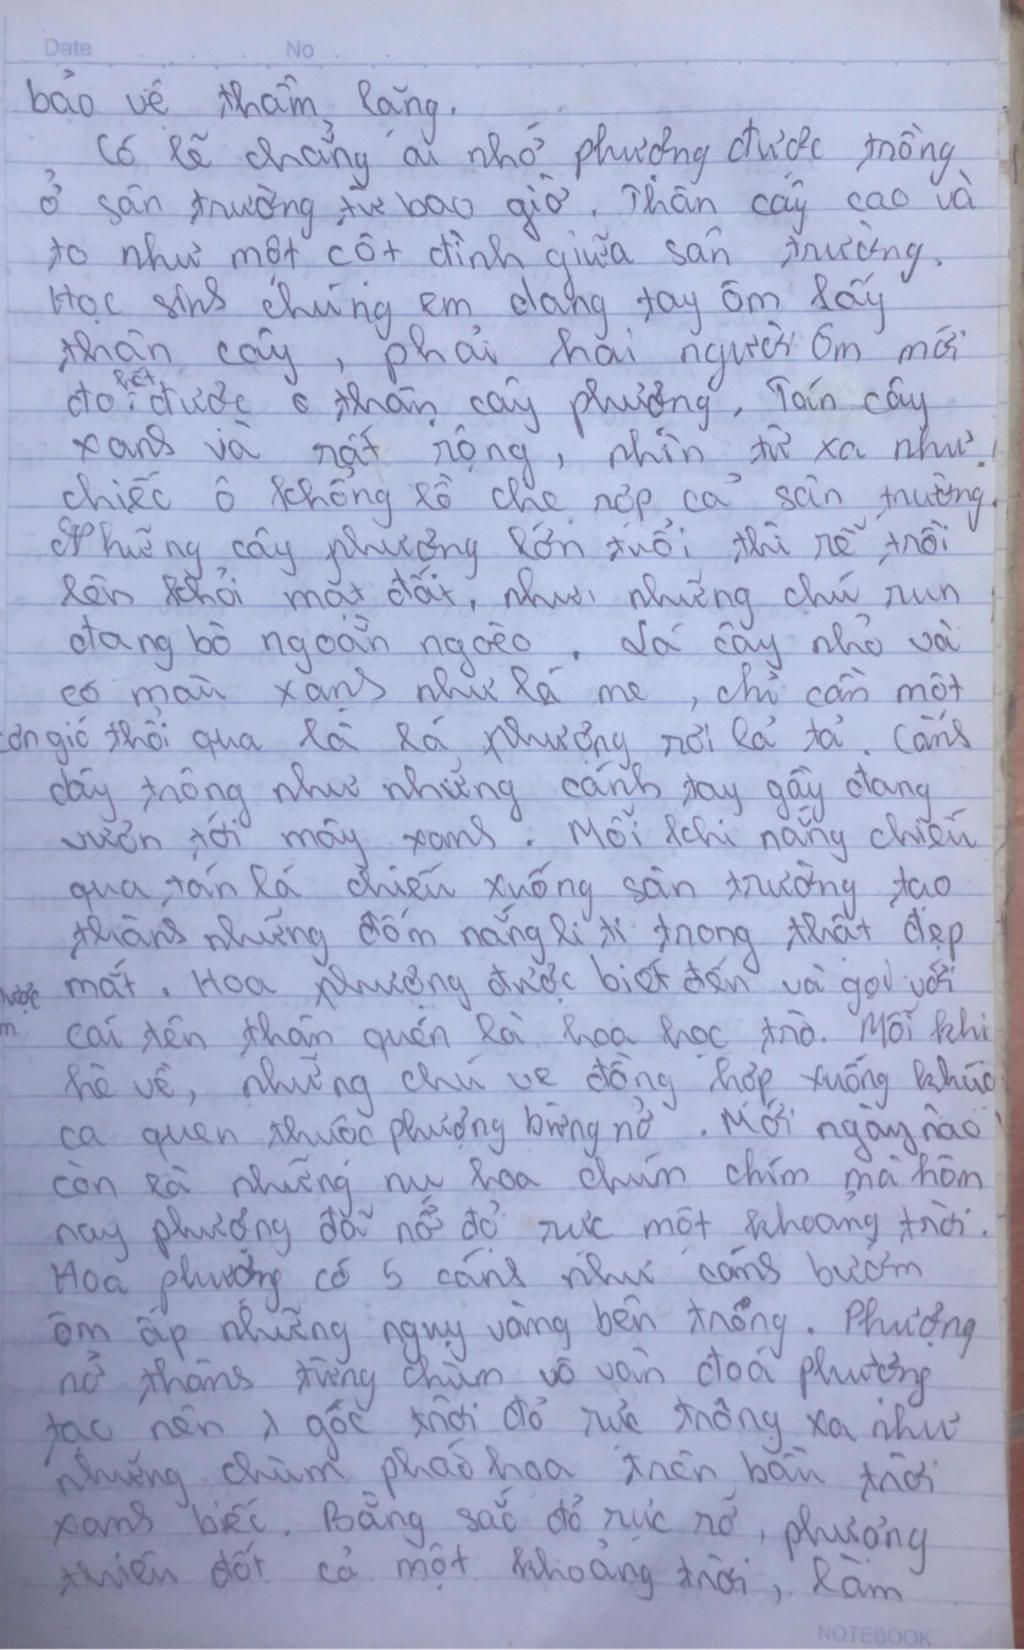 Date No
bảo vệ thầm lặng.
Có lẽ chẳng ai nhớ phượng được trồng
ở sân trường từ bao giờ. Thân cây cao và
to như một cột đình giữa sân trường.
Học sinh chúng em dang tay ôm lấy
thân cây, phải hai người ôm mới
đo hết được thân cây phượng. Tán cây
xanh và rất rộng, nhìn từ xa như
chiếc ô khổng lồ che rợp cả sân trường.
Những cây phượng lớn tuổi thì rễ trồi
lên khỏi mặt đất, như những chú run
đang bò ngoằn ngoèo. Lá cây nhỏ và
có màu xanh như lá me, chỉ cần một
cơn gió thổi qua là lá phượng rơi lả tả. Cành
cây trông như những cánh tay gầy đang
vươn tới mây xanh. Mỗi khi nắng chiếu
qua tán lá chiếu xuống sân trường tạo
thành những đốm nắng li ti trong thật đẹp
mắt. Hoa phượng được biết đến và gọi với
cái tên thân quen là hoa học trò. Mỗi khi
hè về, những chú ve đồng hợp xuống khúc
ca quen thuộc phượng bừng nở. Mới ngày nào
còn là những nụ hoa chúm chím mà hôm
nay phượng đã nở đỏ rực một khoảng trời.
Hoa phượng có 5 cánh như cánh bướm
ôm ấp những nguỵ vàng bên trống. Phượng
nở thành từng chùm vô vàn đoá phượng
tạo nên 1 gốc trời đỏ rực trông xa như
những chùm pháo hoa trên bầu trời
xanh biếc. Bằng sắc đỏ rực rỡ, phượng
thiêu đốt cả một khoảng trời, làm
NOTEBOOK